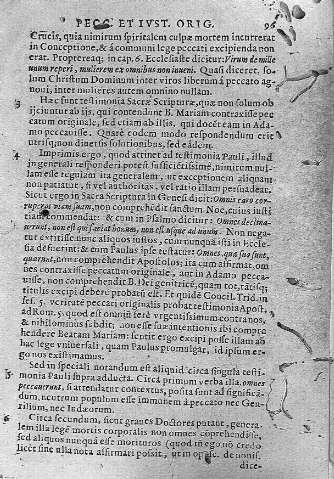 PECC. ET IVST. ORIG. 96
Crucis, quia nimirum spiritalem culpæ mortem incurrerat
in Conceptione, & á communi lege peccati excipienda non
erat. Proptereaq; in cap. 6. Ecclesiastæ dicitur: Virum de mille
unum reperi, mulierem ex omnibus non inueni. Quasi diceret, so-
lum Christum Dominum inter viros liberum á peccato ag-
noui, inter mulieres autem omnino nullam.
3 Hæc sunt testimonia Sacræ Scripturæ, quæ non solum ob
ijciuntur ab ijs, qui contendunt B. Mariam contraxisse pec
catum originale, sed etiam ab illis, qui docent eam in Ada-
mo peccauisse. Quare eodem modo respondendum erit
utrisq; non diuersis solutionibus, sed eâdem.
4 Imprimis ergo, quod attinet ad testimonia Pauli, illud
in generali responderi potest sufficientissime, nimirum nul-
lam esse regulam ita generalem, ut exceptionem aliquam
non patiatur, si vel authoritas, vel ratio illam persuadeat.
Sicut ergo in Sacra Scriptura in Genesi dicit: Omnis caro cor-
ruperat viam suam, non comprehendit sanctum Noe, cuius iusti
tiam commendat: & cum in Psalmo dicitur: Omnes declina-
uerunt, non est qui faciat bonum, non est usque ad unum. Non nega-
tur extitisse tunc aliquos iustos, cum nunquam iusti in Eccle-
sia defuerint: & cum Paulus ipse testatur: Omnes, quæ sua sunt,
quærunt, non comprehendit Apostolos; ita cum affirmat, om
nes contraxisse peccatum originale, aut in Adamo pecca-
uisse, non comprehendit B. Dei genitricẽ, quam tot, tantisq;
titulis excipi debere probatum est. Et quidem Concil. Trid. in
sess. 5. veritatem peccati originalis probat testimonio Apost.
ad Rom. 5. quod est omnium ferè urgentissimum contra nos,
& nihilominus subdit, non esse suæ intentionis ibi compre
hendere Beatam Mariam: sentit ergo excipi posse illam ab
hac lege vniuersali, quam Paulus promulgat, id ipsum er-
go nos existimamus.
5 Sed in speciali notandum est aliquid circa singula testi-
monia Pauli supra adducta. Circa primum verba illa, omnes
peccauerunt, si attendatur contextus, posita sunt ad significan-
dum, neutrum populum esse immunem á peccato nec Gen-
tilium, nec Iudæorum.
6 Circa secundum, sicut graues Doctores putant, genera-
lem illã legẽ mortis corporalis non omnes comprehendisse,
sed aliquos nunquã esse morituros (quod in ego nõ credo
licet sine ulla nota affirmari possit, ut in opusc. de nouiss.
dice-